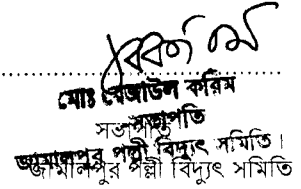 মোঃ রেজাউল করিম
সভাপতি
সভাপতি
জামালপুর পল্লী বিদ্যুৎ সমিতি।
জামালপুর পল্লী বিদ্যুৎ সমিতি